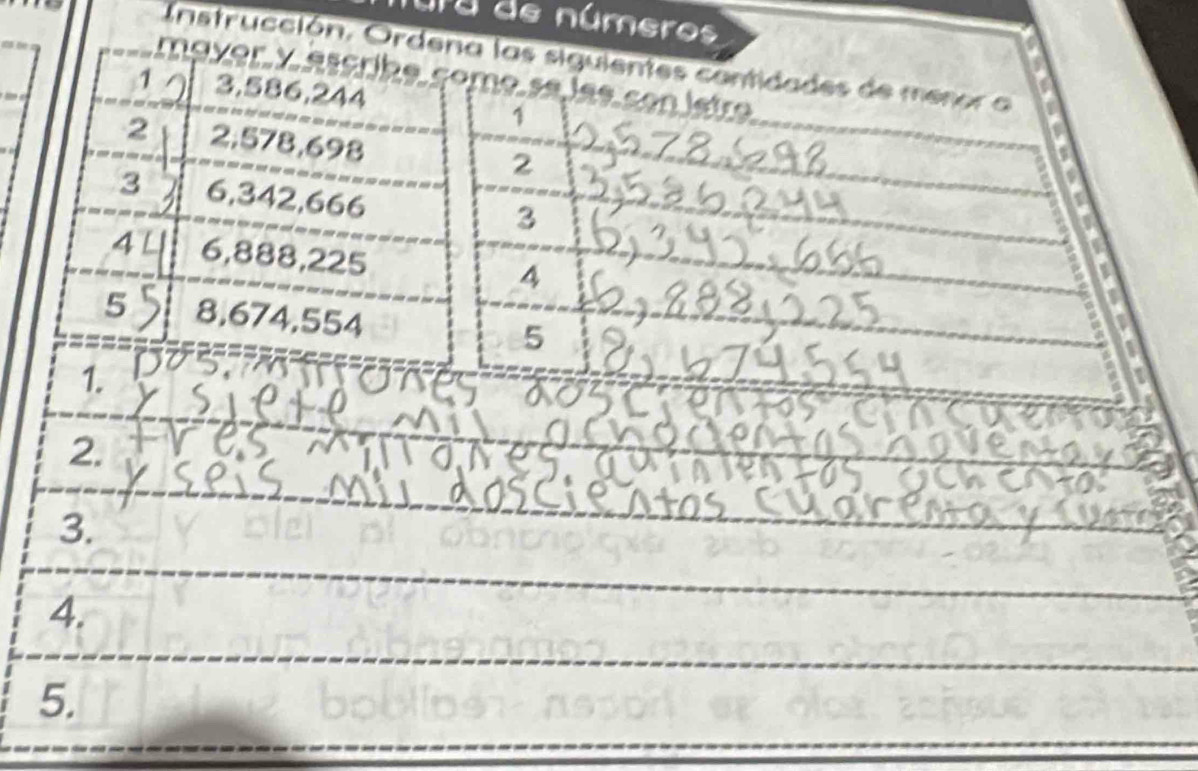 de números
Instrucción. Ordena las siguientes cantidades de menor a
mayor y escribe como se lee con letra
1 2 3,586,244
2 1 2,578,698
3 3 6,342,666
4 4 6,888,225
5 5 8,674,554
1 2,578,698
2 3,586,244
3 6,342,666
4 6,888,225
5 8,674,554
1. Dos millones doscientos cincuenta
y siete mil ochocientos noventa y
2. tres millones quinientos ochenta
y seis mil doscientos cuarenta y
3.
4.
5.